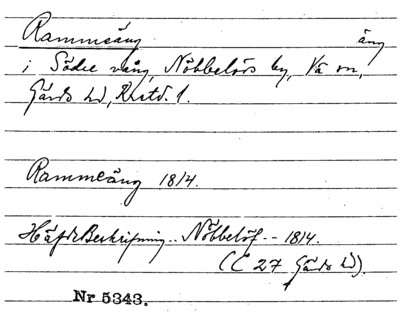 Rammeäng äng
i Södre vång, Nöbbelövs by, Vä sn,
Gärds hd, Krstd. l.
Rammeäng 1814.
HäfdeBeskrifning .. Nöbbelöf -- 1814.
(C 27 Gärds hd).
Nr 5343.